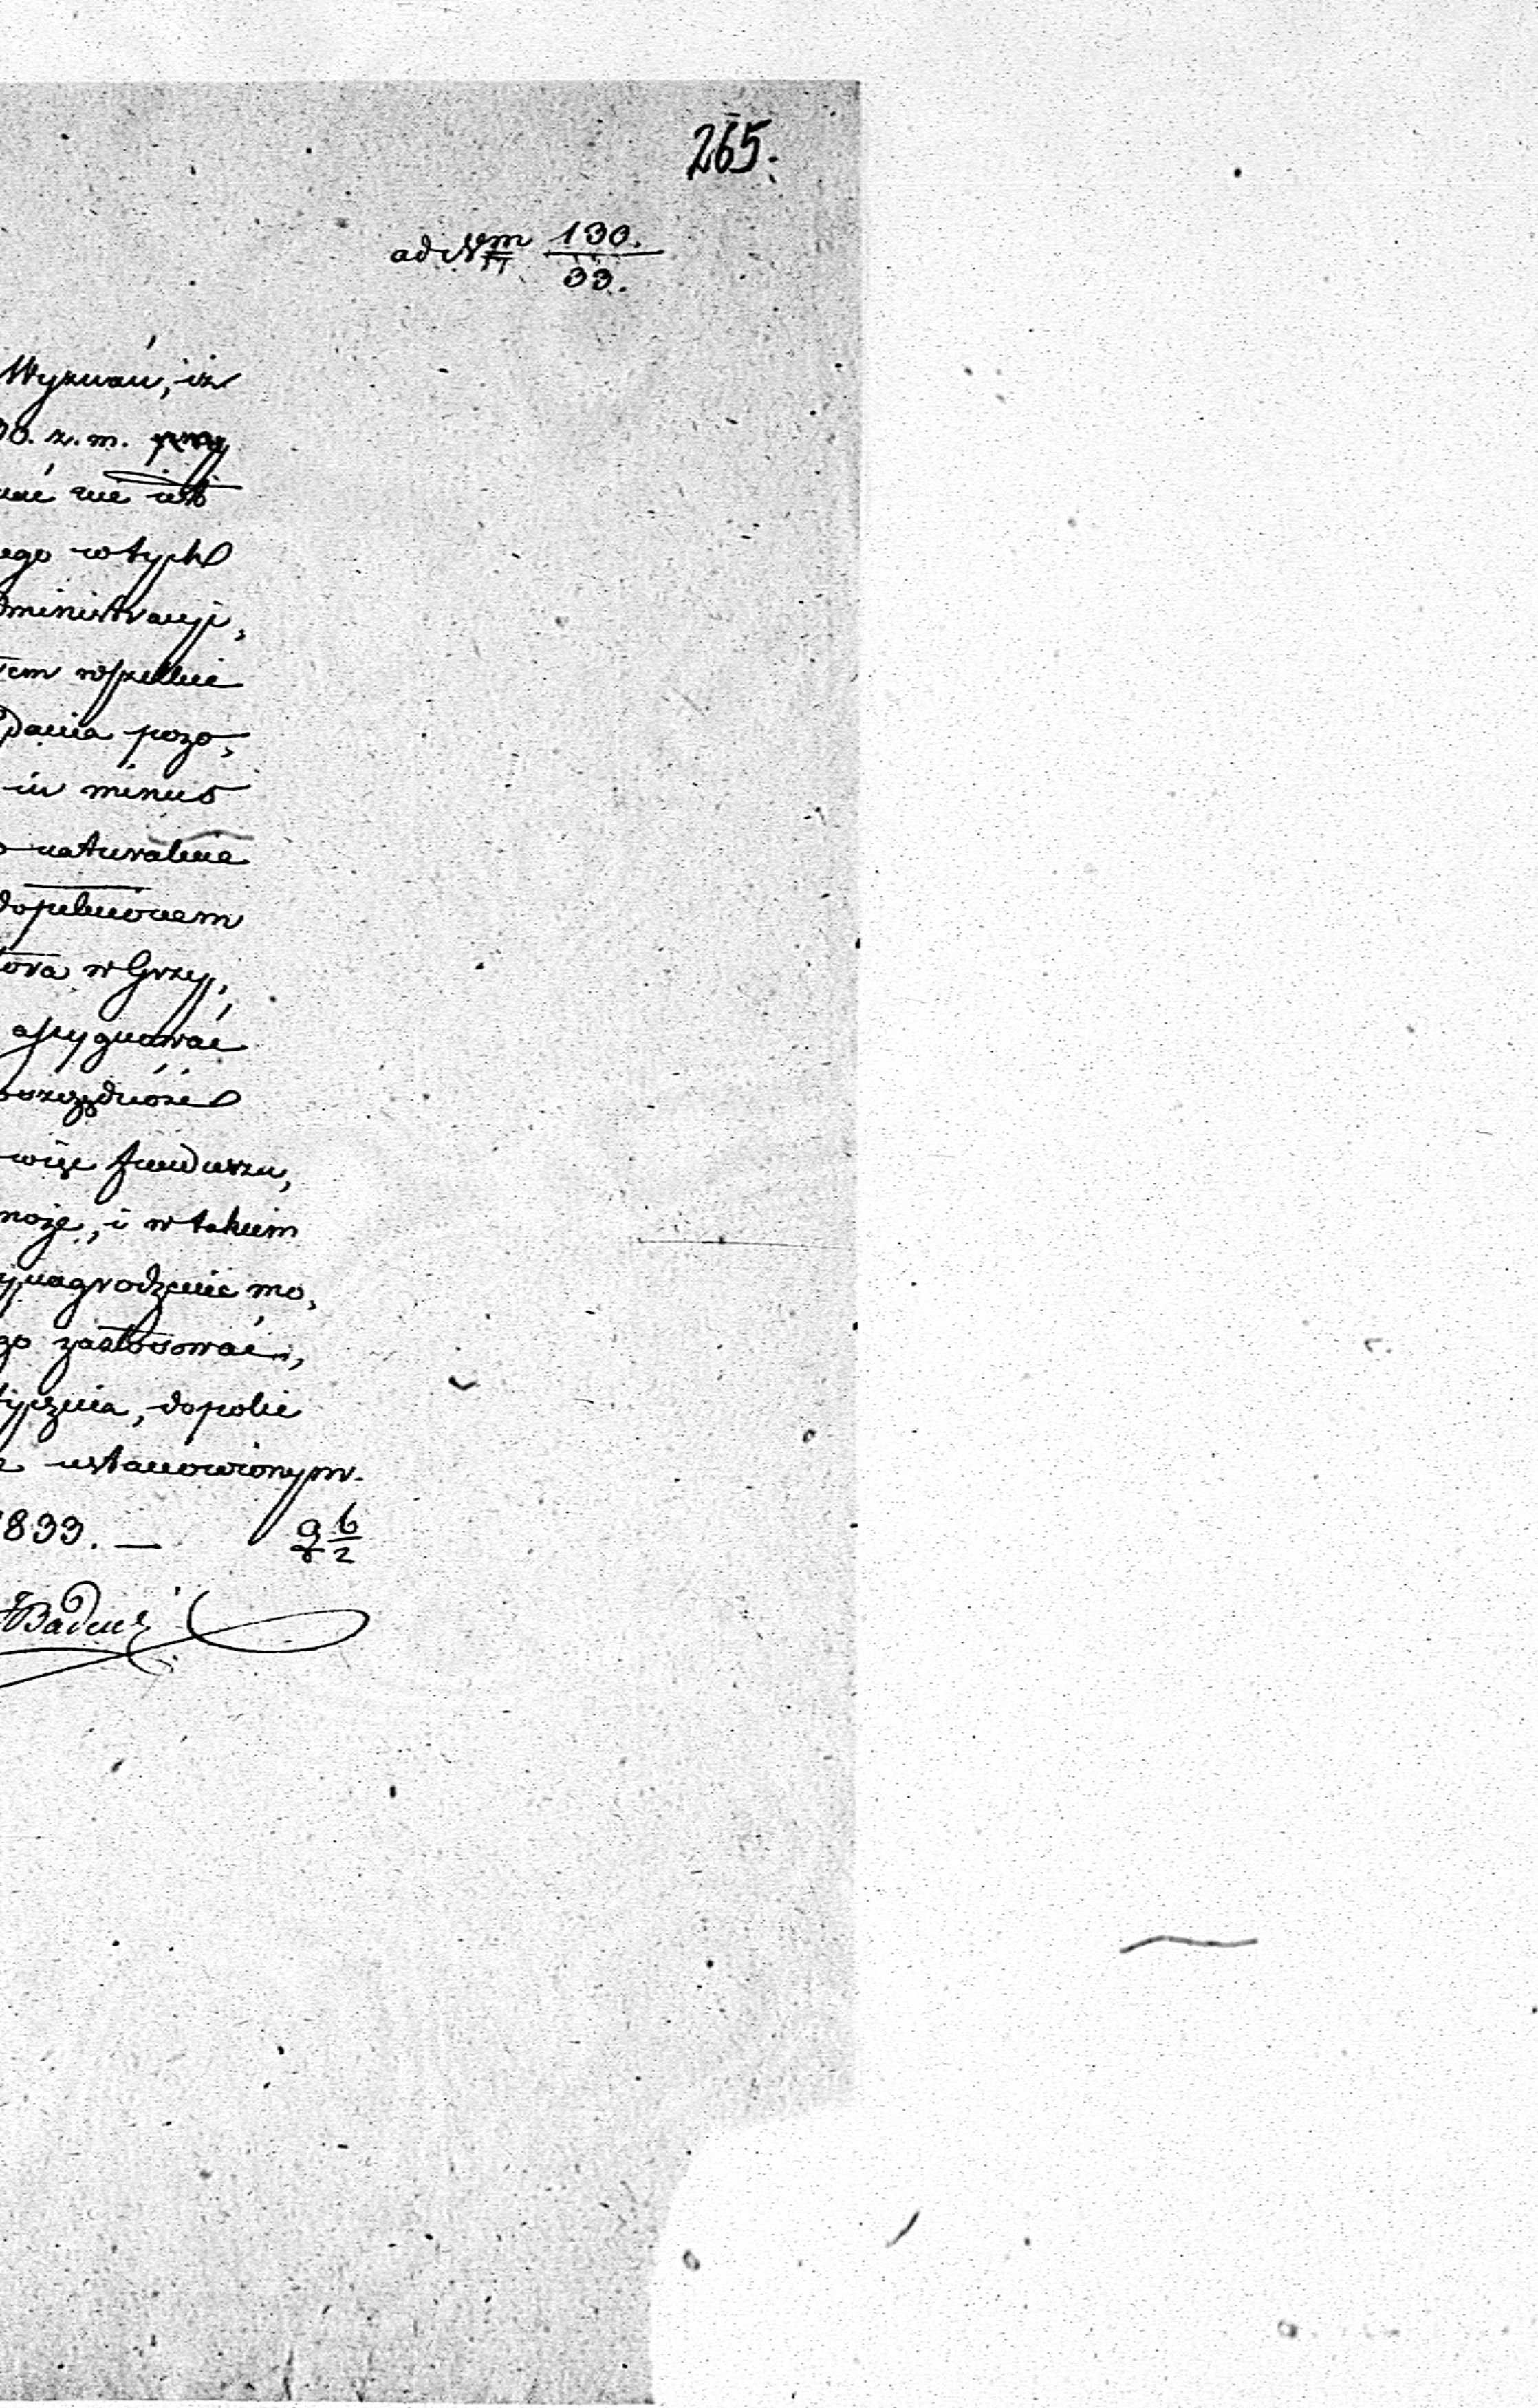 265.
ad Num 130.
33.
Wyznań, iż
30. z. m. przy
nać nie jest
ego w tych
dministracyi,
tem wszelkie
dania pozo,
in minus
o naturalnie
dopełnieniem
tora w Grzy,
assygnować
oszczędność
więc funduszu,
może, i w takim
ynagrodzenie mo,
go zastosować,
tycznia, dopokie
ustanowionym.
1833. —
Badeni